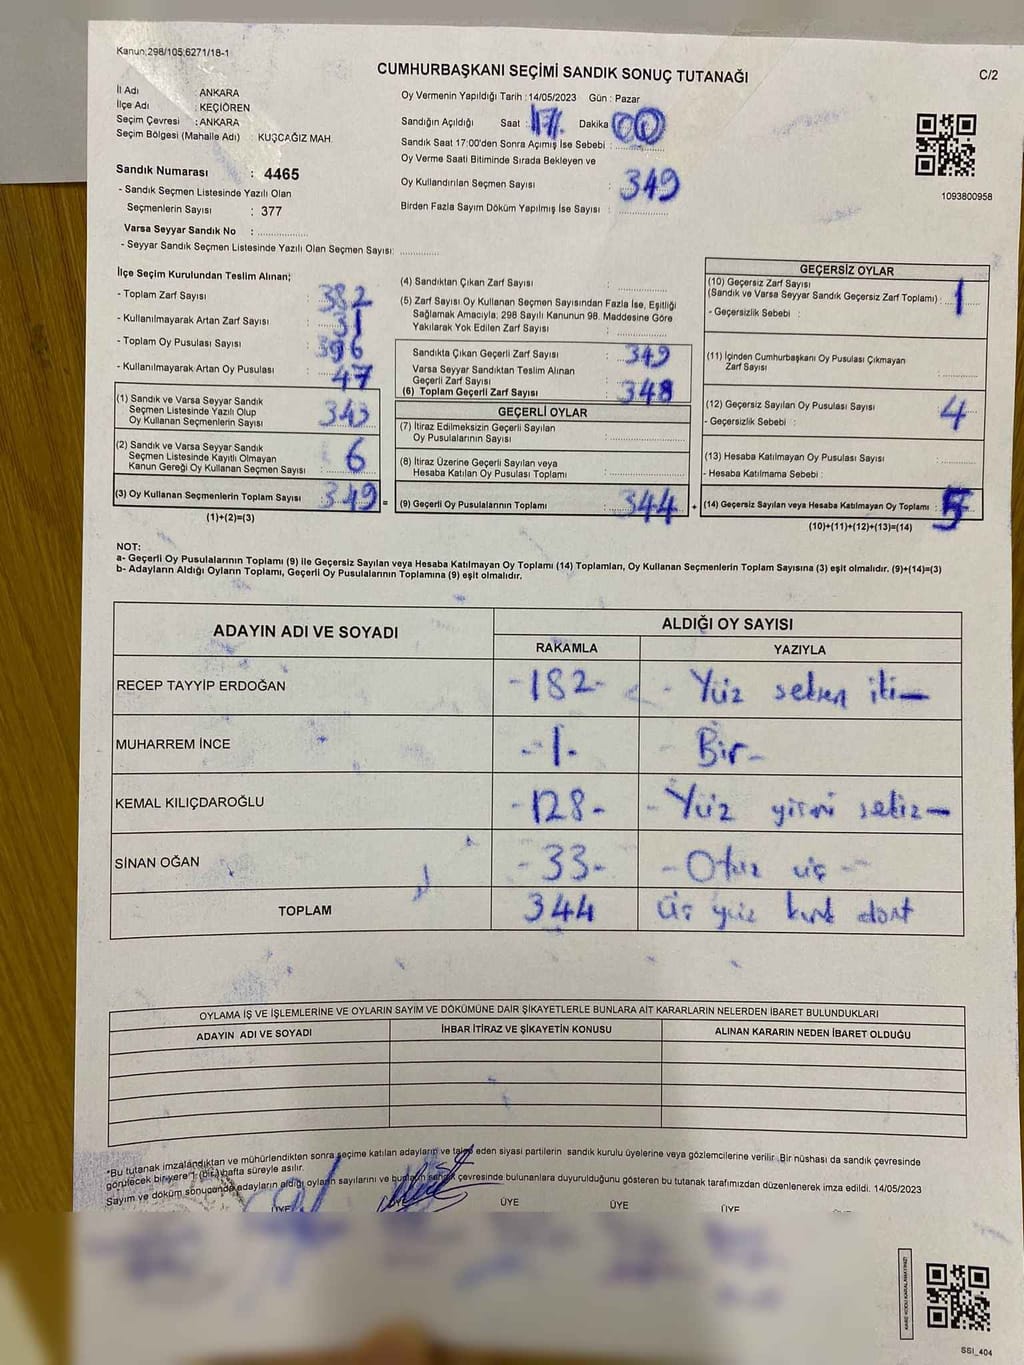 Kanun:298/105;6271/18-1
CUMHURBAŞKANI SEÇİMİ SANDIK SONUÇ TUTANAĞI
C/2
İl Adı : ANKARA
İlçe Adı : KEÇİÖREN
Seçim Çevresi : ANKARA
Seçim Bölgesi (Mahalle Adı) : KUŞCAĞIZ MAH.
Sandık Numarası : 4465
- Sandık Seçmen Listesinde Yazılı Olan
Seçmenlerin Sayısı : 377
Varsa Seyyar Sandık No : ..............
- Seyyar Sandık Seçmen Listesinde Yazılı Olan Seçmen Sayısı: ..............
Oy Vermenin Yapıldığı Tarih : 14/05/2023 Gün : Pazar
Sandığın Açıldığı Saat : 17 Dakika 00
Sandık Saat 17:00'den Sonra Açımış İse Sebebi : ..............
Oy Verme Saati Bitiminde Sırada Bekleyen ve
Oy Kullandırılan Seçmen Sayısı : 349
Birden Fazla Sayım Döküm Yapılmış İse Sayısı : ..............
1093800958
İlçe Seçim Kurulundan Teslim Alınan;
- Toplam Zarf Sayısı : 382
- Kullanılmayarak Artan Zarf Sayısı : 31
- Toplam Oy Pusulası Sayısı : 396
- Kullanılmayarak Artan Oy Pusulası : 47
(1) Sandık ve Varsa Seyyar Sandık
Seçmen Listesinde Yazılı Olup
Oy Kullanan Seçmenlerin Sayısı : 343
(2) Sandık ve Varsa Seyyar Sandık
Seçmen Listesinde Kayıtlı Olmayan
Kanun Gereği Oy Kullanan Seçmen Sayısı : 6
(3) Oy Kullanan Seçmenlerin Toplam Sayısı : 349 =
(1)+(2)=(3)
(4) Sandıktan Çıkan Zarf Sayısı : ..............
(5) Zarf Sayısı Oy Kullanan Seçmen Sayısından Fazla İse, Eşitliği
Sağlamak Amacıyla; 298 Sayılı Kanunun 98. Maddesine Göre
Yakılarak Yok Edilen Zarf Sayısı : ..............
Sandıkta Çıkan Geçerli Zarf Sayısı : 349
Varsa Seyyar Sandıktan Teslim Alınan
Geçerli Zarf Sayısı
(6) Toplam Geçerli Zarf Sayısı : 348
GEÇERLİ OYLAR
(7) İtiraz Edilmeksizin Geçerli Sayılan
Oy Pusulalarının Sayısı : ..............
(8) İtiraz Üzerine Geçerli Sayılan veya
Hesaba Katılan Oy Pusulası Toplamı : ..............
(9) Geçerli Oy Pusulalarının Toplamı : 344 +
GEÇERSİZ OYLAR
(10) Geçersiz Zarf Sayısı
(Sandık ve Varsa Seyyar Sandık Geçersiz Zarf Toplamı) : 1
- Geçersizlik Sebebi :
(11) İçinden Cumhurbaşkanı Oy Pusulası Çıkmayan
Zarf Sayısı : ..............
(12) Geçersiz Sayılan Oy Pusulası Sayısı : 4
- Geçersizlik Sebebi :
(13) Hesaba Katılmayan Oy Pusulası Sayısı : ..............
- Hesaba Katılmama Sebebi :
(14) Geçersiz Sayılan veya Hesaba Katılmayan Oy Toplamı : 5
(10)+(11)+(12)+(13)=(14)
NOT:
a- Geçerli Oy Pusulalarının Toplamı (9) ile Geçersiz Sayılan veya Hesaba Katılmayan Oy Toplamı (14) Toplamları, Oy Kullanan Seçmenlerin Toplam Sayısına (3) eşit olmalıdır. (9)+(14)=(3)
b- Adayların Aldığı Oyların Toplamı, Geçerli Oy Pusulalarının Toplamına (9) eşit olmalıdır.
ADAYIN ADI VE SOYADI
ALDIĞI OY SAYISI
RAKAMLA YAZIYLA
RECEP TAYYİP ERDOĞAN -182- - Yüz seksen iki-
MUHARREM İNCE -1- - Bir-
KEMAL KILIÇDAROĞLU -128- -Yüz yirmi sekiz-
SİNAN OĞAN -33- -Otuz üç-
TOPLAM 344 üç yüz kırk dört
OYLAMA İŞ VE İŞLEMLERİNE VE OYLARIN SAYIM VE DÖKÜMÜNE DAİR ŞİKAYETLERLE BUNLARA AİT KARARLARIN NELERDEN İBARET BULUNDUKLARI
ADAYIN ADI VE SOYADI İHBAR İTİRAZ VE ŞİKAYETİN KONUSU ALINAN KARARIN NEDEN İBARET OLDUĞU
*Bu tutanak imzalandıktan ve mühürlendikten sonra seçime katılan adayların ve talep eden siyasi partilerin sandık kurulu üyelerine veya gözlemcilerine verilir. Bir nüshası da sandık çevresinde
görülecek bir yere 1 (bir) hafta süreyle asılır.
Sayım ve döküm sonucunda adayların aldığı oyların sayılarını ve bunların sandık çevresinde bulunanlara duyurulduğunu gösteren bu tutanak tarafımızdan düzenlenerek imza edildi. 14/05/2023
ÜYE ÜYE ÜYE ÜYE
SSI_404